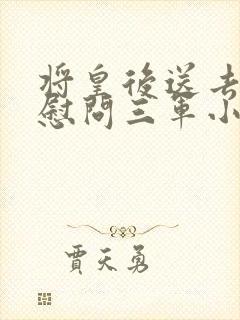 将皇後送去
慰問三軍小
賈天勇